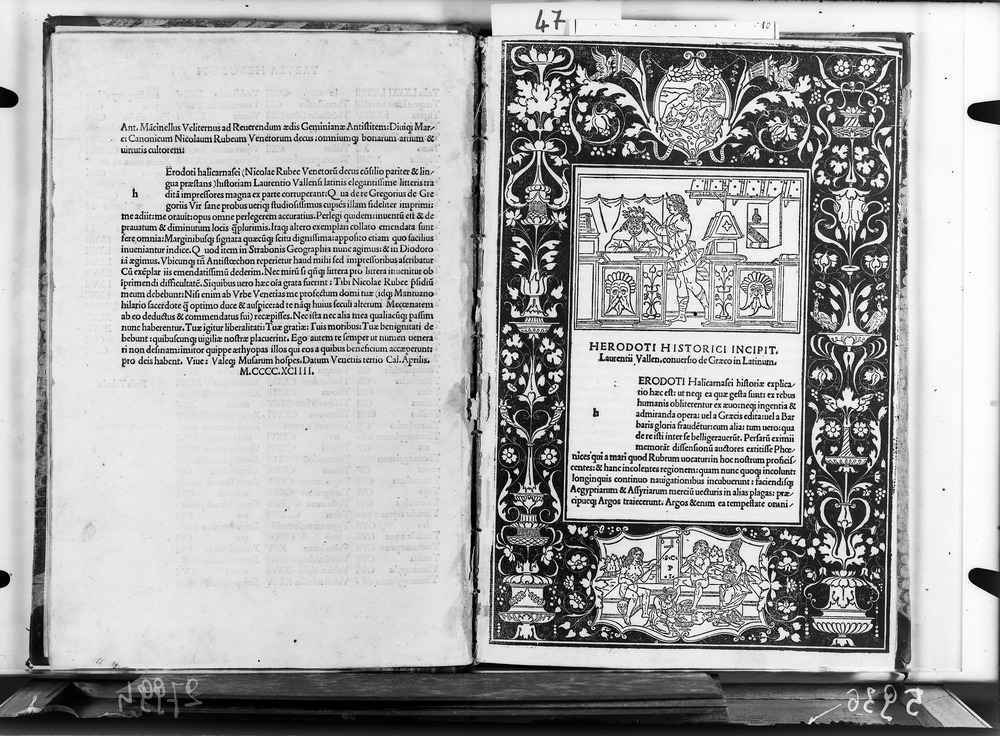 47
Ant. Mācinellus Veliternus ad Reuerendum ædis Geminianæ Antistitem: Diuiq; Mar-
ci Canonicum Nicolaum Rubeum Venetorum decus: omniumq; bonarum artium &
uirtutis cultorem:
h
Erodoti halicarnasei (Nicolae Rubee Venetorū decus cōsilio pariter & lin
gua præstans) historiam Laurentio Vallensi latinis elegantissime litteris tra
ditā impressores magna ex parte corruperant: Q ua de re Gregorius de Gre
goriis Vir sane probus ueriq; studiosissimus cupiēs illam fideliter imprimi:
me adiit: me orauit: opus omne perlegerem accuratius. Perlegi quidem: inuentū est & de
prauatum & diminutum locis q̄plurimis. Itaq; altero exemplari collato emendata sunt
fere omnia: Marginibusq; signata quæcūq; scitu dignissima: apposito etiam quo facilius
inueniantur indice. Q uod item in Strabonis Geographia nunc agimus: & in Diodoro
iā agimus. Vbicunq; tñ Antistœchon reperietur haud mihi sed impressoribus ascribatur
Cū exēplar iis emendatissimū dederim. Nec mirū si qñq; littera pro littera inuenitur ob
īprimendi difficultatē. Siquibus uero hæc oīa grata fuerint: Tibi Nicolae Rubee p̄sidiū
meum debebunt: Nisi enim ab Vrbe Venetias me profectum domi tuæ (idq; Mantuano
hilario sacerdote q̄ optimo duce & auspice: ad te nāq; huius seculi alterum Mecœnatem
ab eo deductus & commendatus fui) recœpisses. Nec ista nec alia mea qualiacūq; passim
nunc haberentur. Tuæ igitur liberalitati: Tuæ gratiæ: Tuis moribus: Tuæ benignitati de
bebunt: quibuscunq; uigiliæ nostræ placuerint. Ego autem te semper ut numen uenera
ri non desinam: imitor quippe æthyopas illos qui eos a quibus beneficium accœperunt:
pro deis habent. Viue: Valeq; Musarum hospes. Datum Venetiis tertio Cal. Aprilis.
M.CCCC.XCIIII.
HERODOTI HISTORICI INCIPIT.
Laurentii Vallen. conuersio de Græco in Latinum.
h
ERODOTI Halicarnasei historiæ explica-
tio hæc est: ut neq; ea quæ gesta sunt: ex rebus
humanis obliterentur ex æuo: neq; ingentia &
admiranda opera: uel a Græcis edita: uel a Bar
baris gloria fraudētur: cum alia: tum uero: qua
de re isti inter se belligerauerūt. Persarū eximii
memorāt dissensionū auctores extitisse Phœ-
nices qui a mari quod Rubrum uocatur: in hoc nostrum profici-
centes: & hanc incolentes regionem: quam nunc quoq; incolunt:
longinquis continuo nauigationibus incubuerunt: faciendisq;
Aegyptiarum & Assyriarum merciū uecturis in alias plagas: præ-
cipueq; Argos traiecerunt. Argos &enim ea tempestate omni-
27994
5936